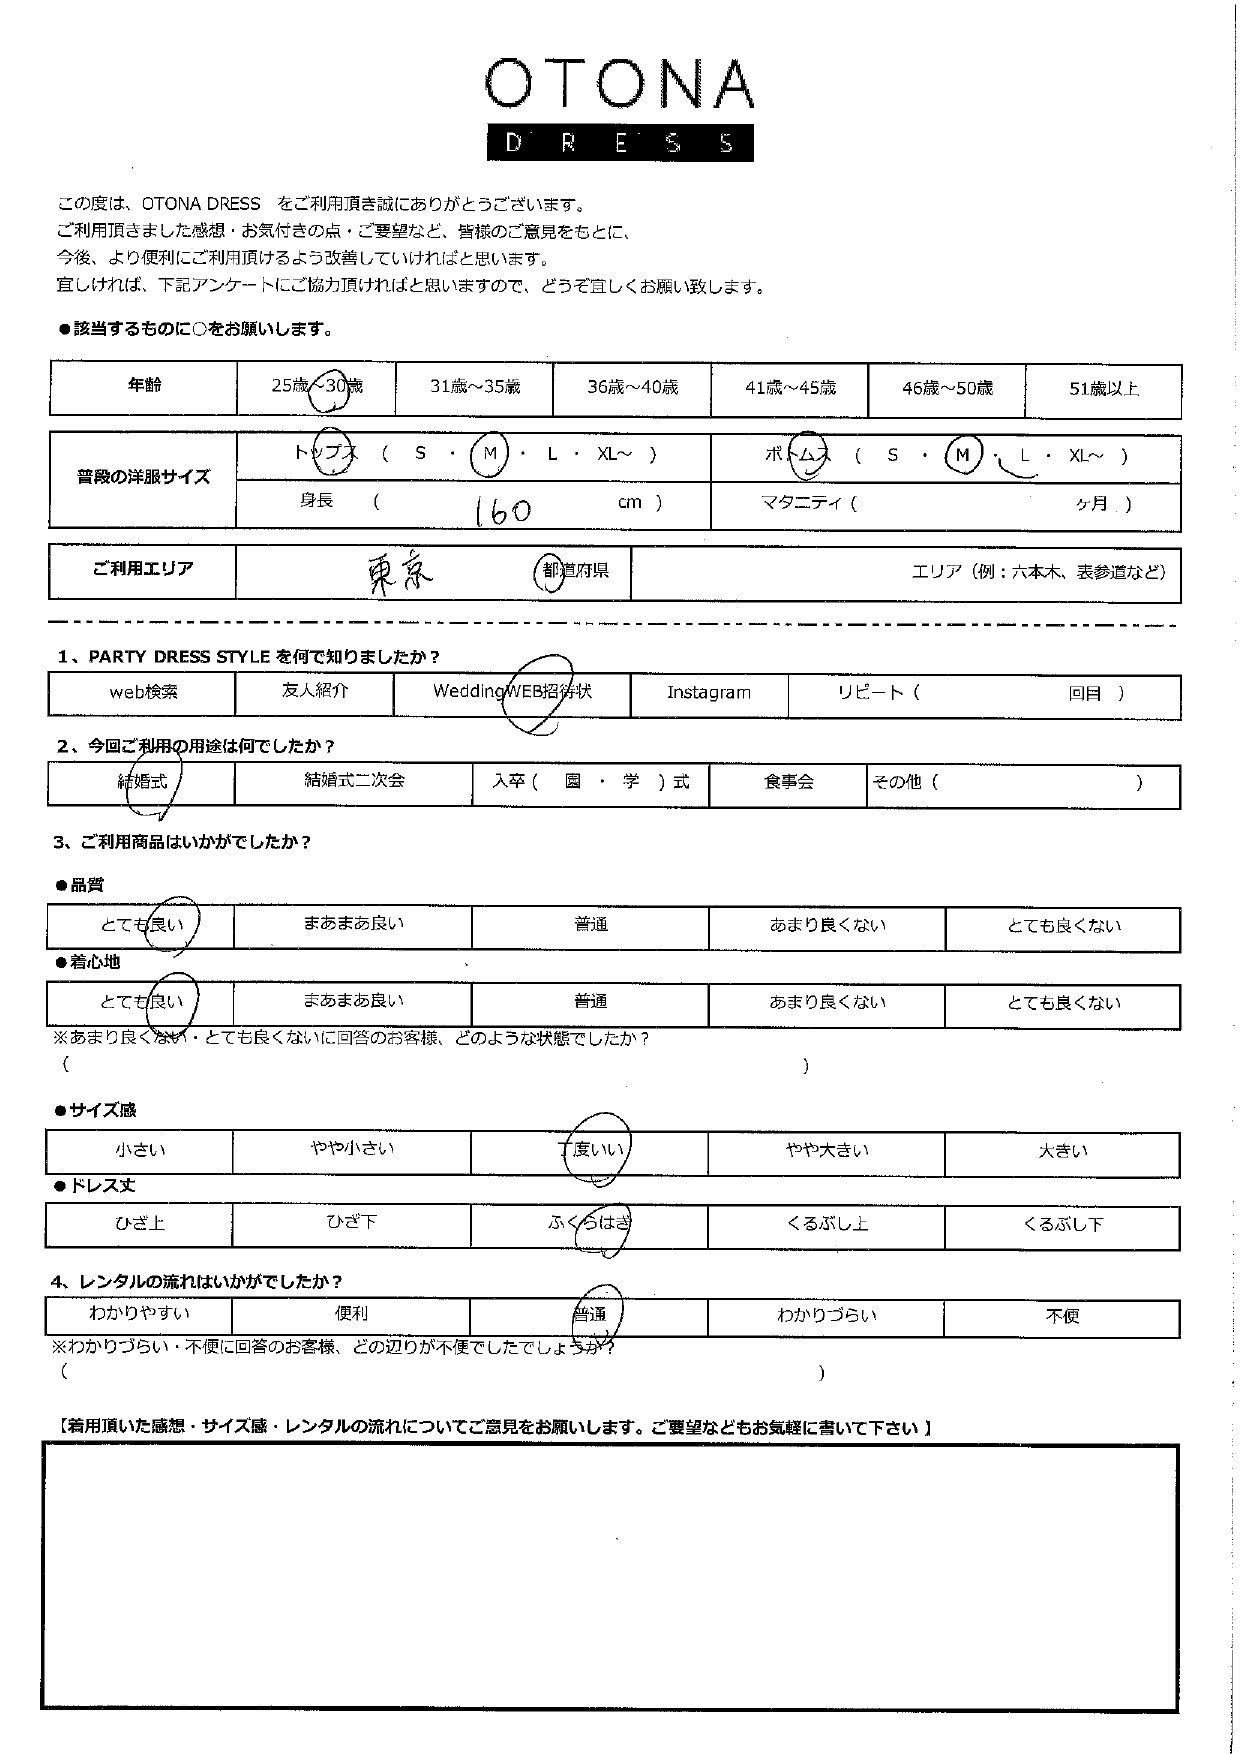 OTONA
DRESS
この度は、OTONA DRESS　をご利用頂き誠にありがとうございます。
ご利用頂きました感想・お気付きの点・ご要望など、皆様のご意見をもとに、
今後、より便利にご利用頂けるよう改善していければと思います。
宜しければ、下記アンケートにご協力頂ければと思いますので、どうぞ宜しくお願い致します。
●該当するものに○をお願いします。
年齢 25歳～30歳 31歳～35歳 36歳～40歳 41歳～45歳 46歳～50歳 51歳以上
普段の洋服サイズ トップス （ S ・ M ・ L ・ XL～ ） ボトムス （ S ・ M ・ L ・ XL～ ）
身長 （ 160 cm ） マタニティ（ ヶ月 ）
ご利用エリア 東京 都道府県 エリア（例：六本木、表参道など）
1、PARTY DRESS STYLE を何で知りましたか？
web検索 友人紹介 WeddingWEB招待状 Instagram リピート（ 回目 ）
2、今回ご利用の用途は何でしたか？
結婚式 結婚式二次会 入卒（ 園 ・ 学 ）式 食事会 その他（ ）
3、ご利用商品はいかがでしたか？
●品質
とても良い まあまあ良い 普通 あまり良くない とても良くない
●着心地
とても良い まあまあ良い 普通 あまり良くない とても良くない
※あまり良くない・とても良くないに回答のお客様、どのような状態でしたか？
（ ）
●サイズ感
小さい やや小さい 丁度いい やや大きい 大きい
●ドレス丈
ひざ上 ひざ下 ふくらはぎ くるぶし上 くるぶし下
4、レンタルの流れはいかがでしたか？
わかりやすい 便利 普通 わかりづらい 不便
※わかりづらい・不便に回答のお客様、どの辺りが不便でしたでしょうか？
（ ）
【着用頂いた感想・サイズ感・レンタルの流れについてご意見をお願いします。ご要望などもお気軽に書いて下さい】